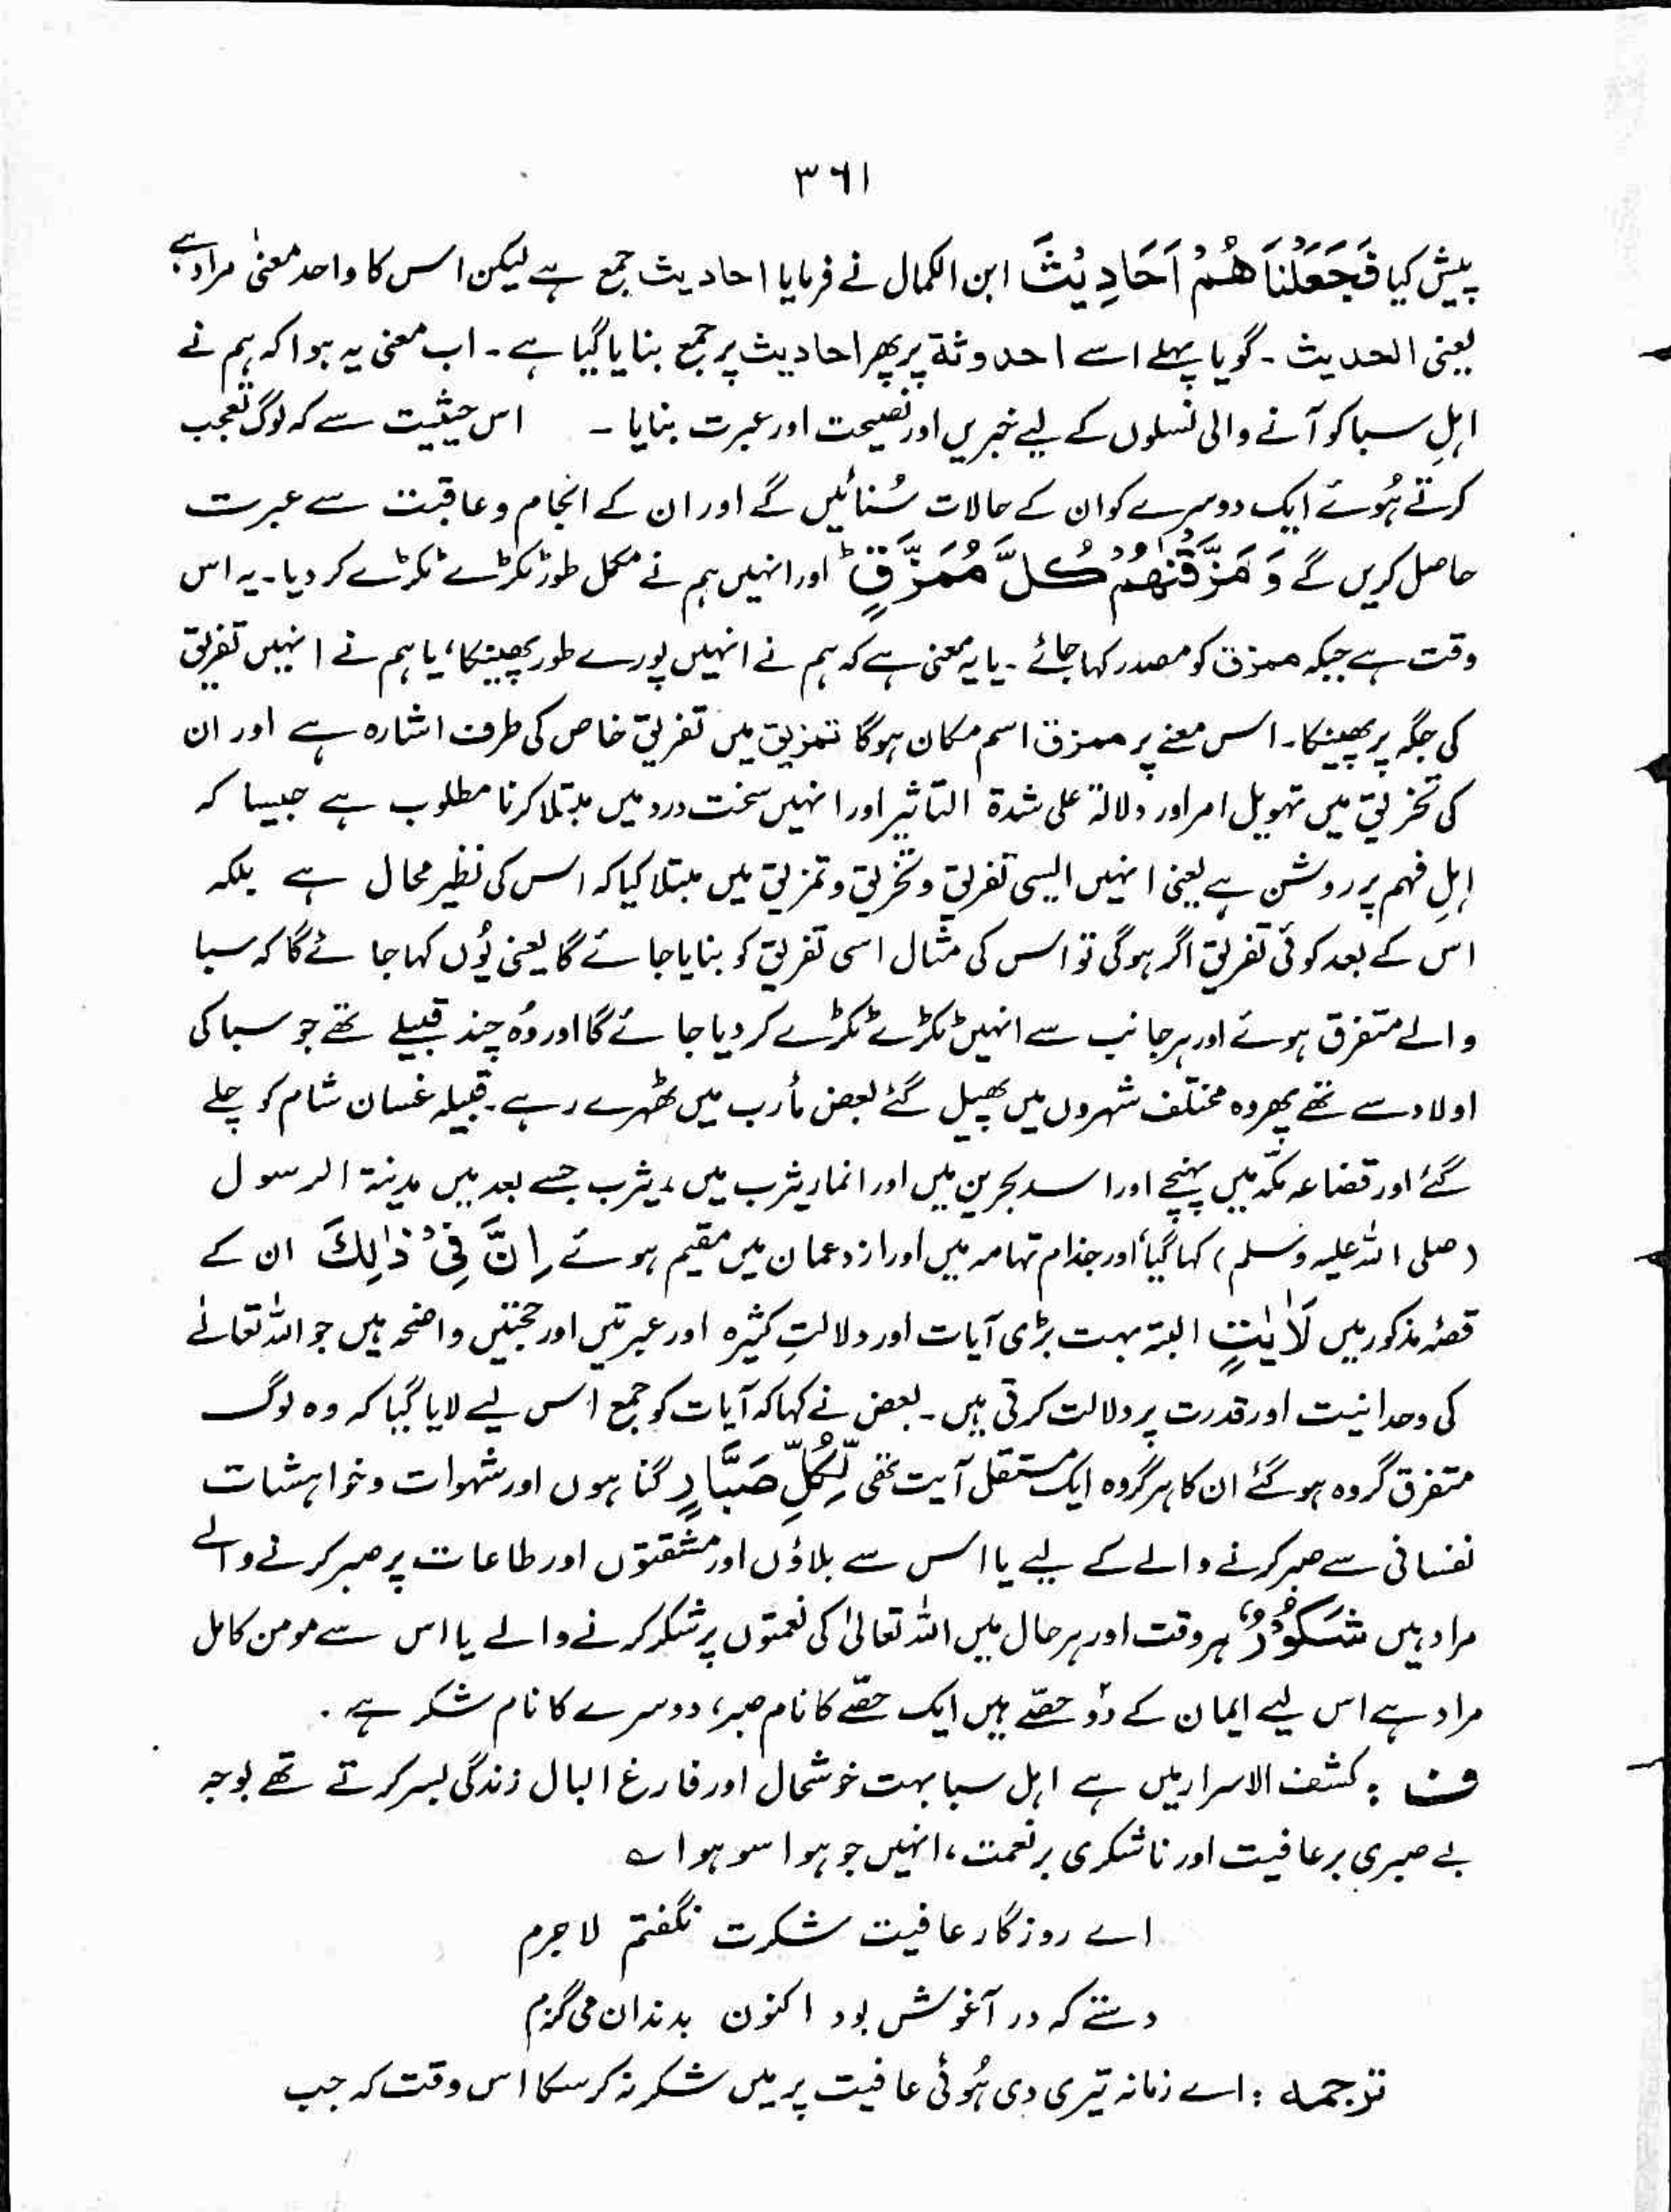 ۳۶۱
پیش کیا فَجَعَلْنَاهُمْ اَحَادِیْثَ ابن الکمال نے فرمایا احادیث جمع ہے لیکن اس کا واحد معنیٰ مراد ہے
یعنی الحدیث ۔ گویا پہلے اسے احدوثۃ پر پھر احادیث پر جمع بنایا گیا ہے ۔ اب معنی یہ ہوا کہ ہم نے
اہلِ سبا کو آنے والی نسلوں کے لیے خبریں اور نصیحت اور عبرت بنایا ۔ اس حیثیت سے کہ لوگ تعجب
کرتے ہُوئے ایک دوسرے کو ان کے حالات سُنائیں گے اور ان کے انجام و عاقبت سے عبرت
حاصل کریں گے وَ مَزَّقْنٰهُمْ كُلَّ مُمَزَّقٍ ؕ اور انہیں ہم نے مکمل طور ٹکڑے ٹکڑے کر دیا ۔ یہ اس
وقت ہے جبکہ ممزق کو مصدر کہا جائے ۔ یا یہ معنی ہے کہ ہم نے انہیں پورے طور پھینکا ، یا ہم نے انہیں تفریق
کی جگہ پر پھینکا ۔ اس معنے پر ممزق اسم مکان ہوگا تمزیق میں تفریق خاص کی طرف اشارہ ہے اور ان
کی تخریق میں تہویل امر اور دلالۃ علی شدۃ التاثیر اور انہیں سخت درد میں مبتلا کرنا مطلوب ہے جیسا کہ
اہلِ فہم پر روشن ہے یعنی انہیں ایسی تفریق و تخریق و تمزیق میں مبتلا کیا کہ اس کی نظیر محال ہے بلکہ
اس کے بعد کوئی تفریق اگر ہوگی تو اس کی مثال اسی تفریق کو بنایا جائے گا یعنی یُوں کہا جائے گا کہ سبا
والے متفرق ہوئے اور ہر جانب سے انہیں ٹکڑے ٹکڑے کر دیا جائے گا اور وُہ چند قبیلے تھے جو سبا کی
اولاد سے تھے پھر وہ مختلف شہروں میں پھیل گئے بعض مأرب میں ٹھہرے رہے ۔ قبیلہ غسان شام کو چلے
گئے اور قضاعہ مکّہ میں پہنچے اور اسد بحرین میں اور انمار یثرب میں ، یثرب جسے بعد میں مدینۃ الرسول
(صلی اللہ علیہ وسلم) کہا گیا ، اور جذام تہامہ میں اور ازد عمان میں مقیم ہوئے اِنَّ فِیْ ذٰلِكَ ان کے
قصۂ مذکور میں لَاٰیٰتٍ البتہ بہت بڑی آیات اور دلالتِ کثیرہ اور عبرتیں اور حجتیں واضحہ ہیں جو اللہ تعالےٰ
کی وحدانیت اور قدرت پر دلالت کرتی ہیں ۔ بعض نے کہا کہ آیات کو جمع اس لیے لایا گیا کہ وہ لوگ
متفرق گروہ ہو گئے ان کا ہر گروہ ایک مستقل آیت تھی لِّكُلِّ صَبَّارٍ گناہوں اور شہوات و خواہشات
نفسانی سے صبر کرنے والے کے لیے یا اس سے بلاؤں اور مشقتوں اور طاعات پر صبر کرنے والے
مراد ہیں شَكُوْرٍ ہر وقت اور ہر حال میں اللہ تعالیٰ کی نعمتوں پر شکر کرنے والے یا اس سے مومن کامل
مراد ہے اس لیے ایمان کے دُو حصّے ہیں ایک حصّے کا نام صبر ، دوسرے کا نام شکر ہے ۔
ف : کشف الاسرار میں ہے اہل سبا بہت خوشحال اور فارغ البال زندگی بسر کرتے تھے بوجہ
بے صبری بر عافیت اور ناشکری بر نعمت ، انہیں جو ہوا سو ہوا ؎
اے روزگار عافیت شکرت نگفتم لا جرم
دستے کہ در آغوش بود اکنون بدندان می گزم
ترجمہ : اے زمانہ تیری دی ہُوئی عافیت پر میں شکر نہ کر سکا اس وقت کہ جب